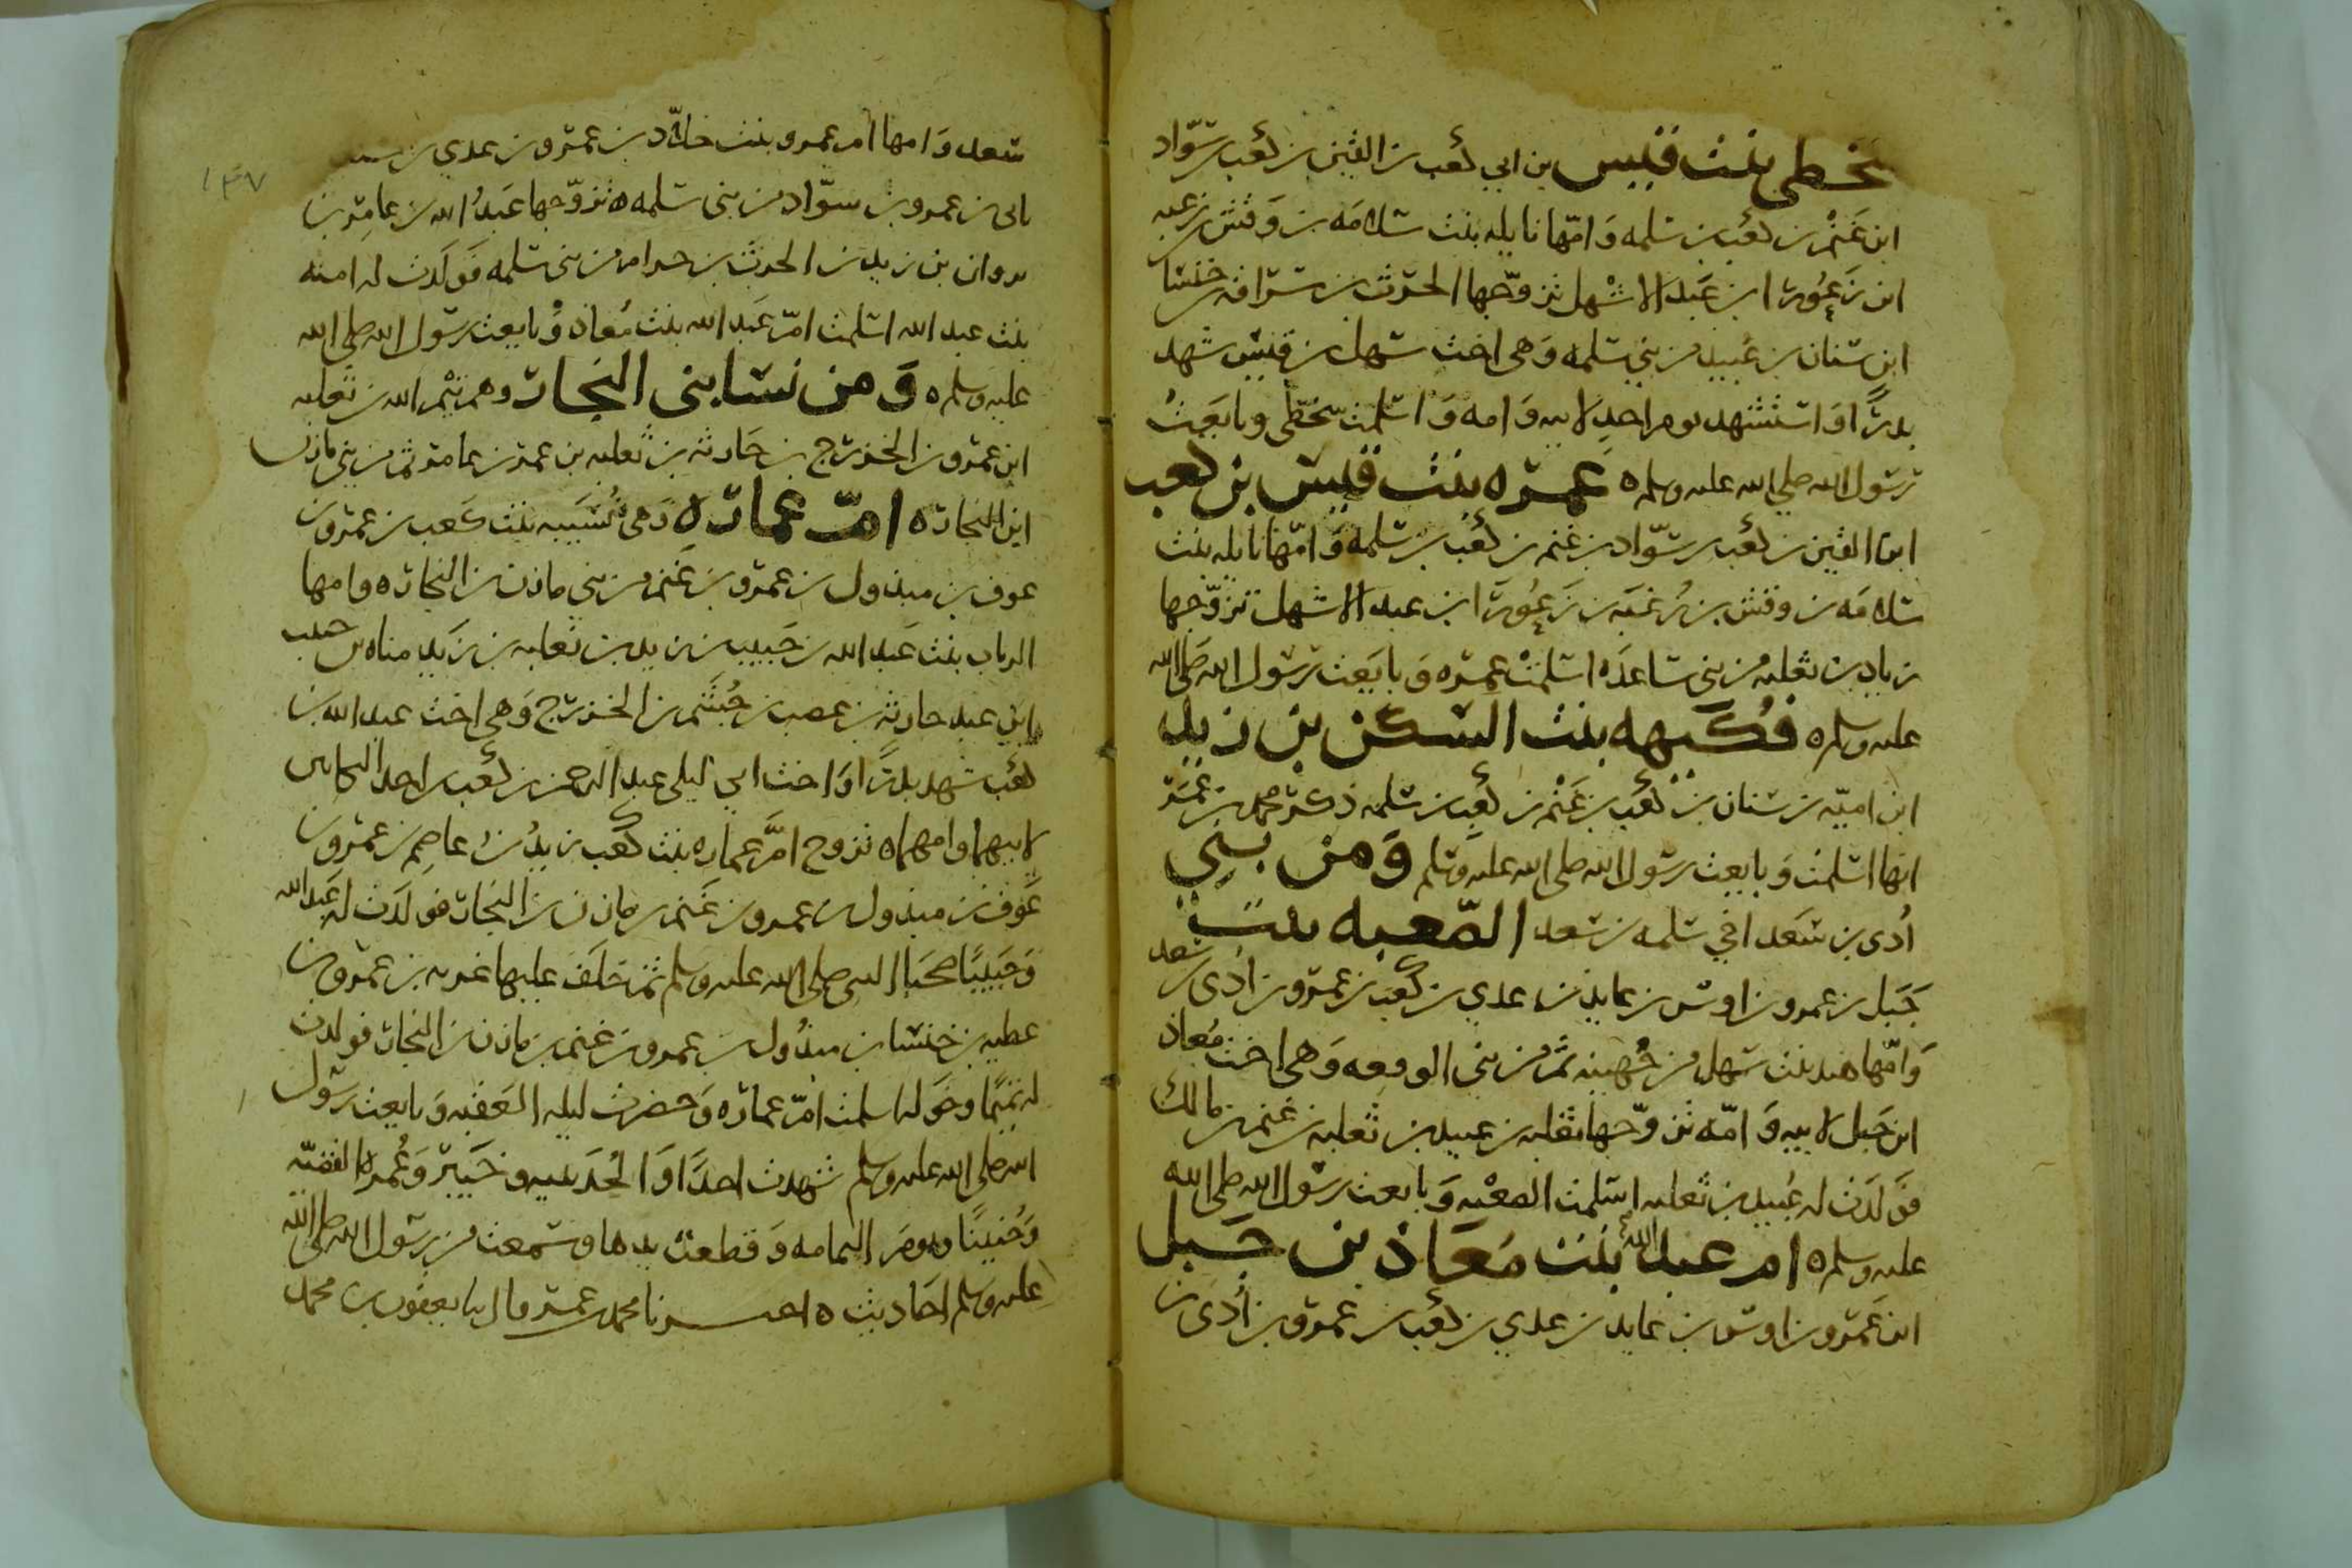 سخطى بنت قيس بن ابي كعب بن القين بن كعب بن سواد
ابن غنم بن كعب بن سلمه وامها نايله بنت سلامه بن وقش بن زغبه
ابن زعورا بن عبد الاشهل تزوجها الحرث بن سراقه بن خنسا
ابن سنان بن عبيد من بني سلمه وهي اخت سهل بن قيس شهد
بدرا واستشهد يوم احد لابيه وامه واسلمت سخطى وبايعت
رسول الله صلى الله عليه وسلم ه عمره بنت قيس بن كعب
ابن القين بن كعب بن سواد بن غنم بن كعب بن سلمه وامها نايله بنت
سلامه بن وقش بن زغبه بن زعورا بن عبد الاشهل تزوجها
زياد بن ثعلبه من بني ساعده اسلمت عمره وبايعت رسول الله صلى الله
عليه وسلم ه فكيهه بنت السكن بن زيد
ابن اميه بن سنان بن كعب بن غنم بن كعب بن سلمه ذكر محمد بن عمر
انها اسلمت وبايعت رسول الله صلى الله عليه وسلم ومن بني
أدي بن سعد اخي سلمه بن سعد الصعبه بنت
جبل بن عمرو بن اوس بن عايد بن عدي بن كعب بن عمرو بن أدي بن سعد
وامها هند بنت سهل من جهينه ثم من بني الربعه وهي اخت معاذ
ابن جبل لابيه وامه تزوجها ثعلبه بن عبيد بن ثعلبه بن غنم بن مالك
فولدت له عبيد بن ثعلبه اسلمت الصعبه وبايعت رسول الله صلى الله
عليه وسلم ه ام عبد الله بنت معاذ بن جبل
ابن عمرو بن اوس بن عايد بن عدي بن كعب بن عمرو بن أدي بن
سعد وامها ام عمرو بنت خلاد بن عمرو بن عدي بن
نابي بن عمرو بن سواد من بني سلمه ه تزوجها عبد الله بن عامر بن
مروان بن زيد بن الحرث بن حرام من بني سلمه فولدت له امنه
بنت عبد الله اسلمت ام عبد الله بنت معاذ وبايعت رسول الله صلى الله
عليه وسلم ه ومن نسا بني النجار وهم تيم الله بن ثعلبه
ابن عمرو بن الخزرج بن حارثه بن ثعلبه بن عمرو بن عامر ثم من بني مازن
ابن النجار ه ام عماره وهي نسيبه بنت كعب بن عمرو بن
عوف بن مبذول بن عمرو بن غنم من بني مازن بن النجار ه وامها
الرباب بنت عبد الله بن حبيب بن زيد بن ثعلبه بن زيد مناه بن حبيب
ابن عبد حارثه بن عصب بن جشم بن الخزرج وهي اخت عبد الله بن
كعب شهد بدرا واخت ابي ليلى عبد الرحمن بن كعب احد البكايين
لابيهما وامهما ه تزوج ام عماره بنت كعب زيد بن عاصم بن عمرو بن
عوف بن مبذول بن عمرو بن غنم بن مازن بن النجار فولدت له عبد الله
وحبيبا صحبا النبي صلى الله عليه وسلم ثم خلف عليها غزيه بن عمرو بن
عطيه بن خنسا بن مبذول بن عمرو بن غنم بن مازن بن النجار فولدت
له تميما وخوله اسلمت ام عماره وحضرت ليله العقبه وبايعت رسول
الله صلى الله عليه وسلم شهدت احدا والحديبيه وخيبر وعمره القضيه
وحنينا ويوم اليمامه وقطعت يدها وسمعت من رسول الله صلى الله
عليه وسلم احاديث ه اخبرنا محمد بن عمر قال بنا يعقوب بن محمد
١٣٧